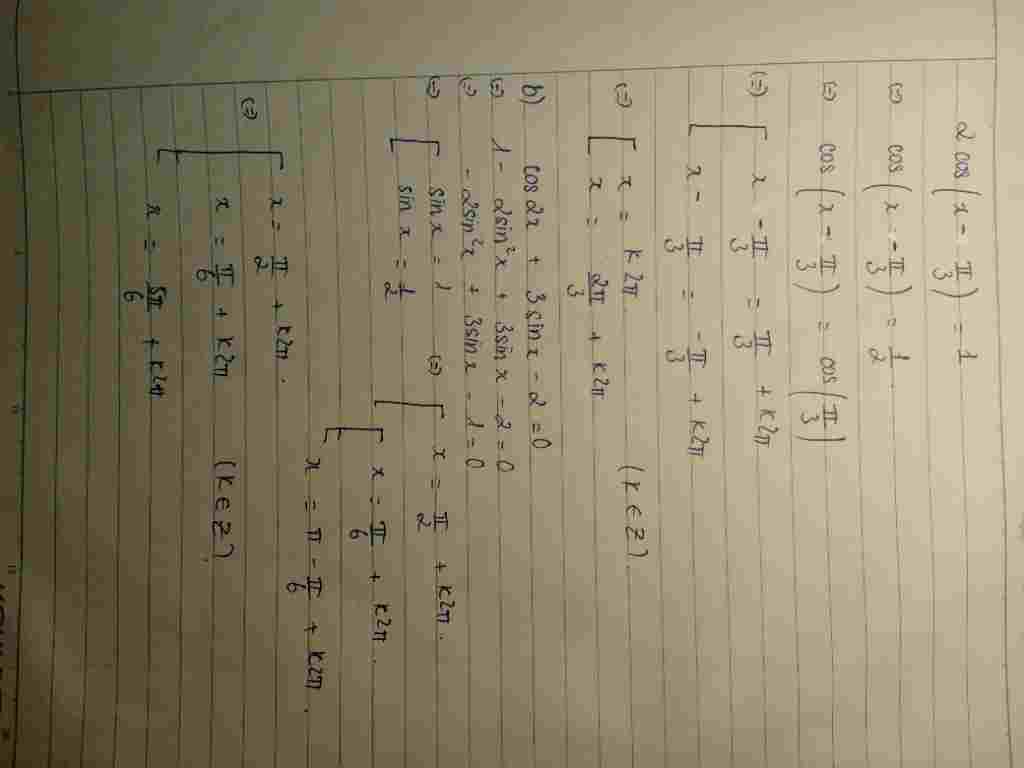 2cos(x - π/3) = 1
(=) cos(x - π/3) = 1/2
(=) cos(x - π/3) = cos(π/3)
(=) [ x - π/3 = π/3 + K2π
x - π/3 = -π/3 + K2π
(=) [ x = K2π (K∈Z).
x = 2π/3 + K2π
b) cos2x + 3sinx - 2 = 0
(=) 1 - 2sin²x + 3sinx - 2 = 0
(=) - 2sin²x + 3sinx - 1 = 0
(=) [ sinx = 1 (=) [ x = π/2 + K2π.
sinx = 1/2 [ x = π/6 + K2π.
x = π - π/6 + K2π.
(=) [ x = π/2 + K2π.
x = π/6 + K2π (K∈Z).
x = 5π/6 + K2π